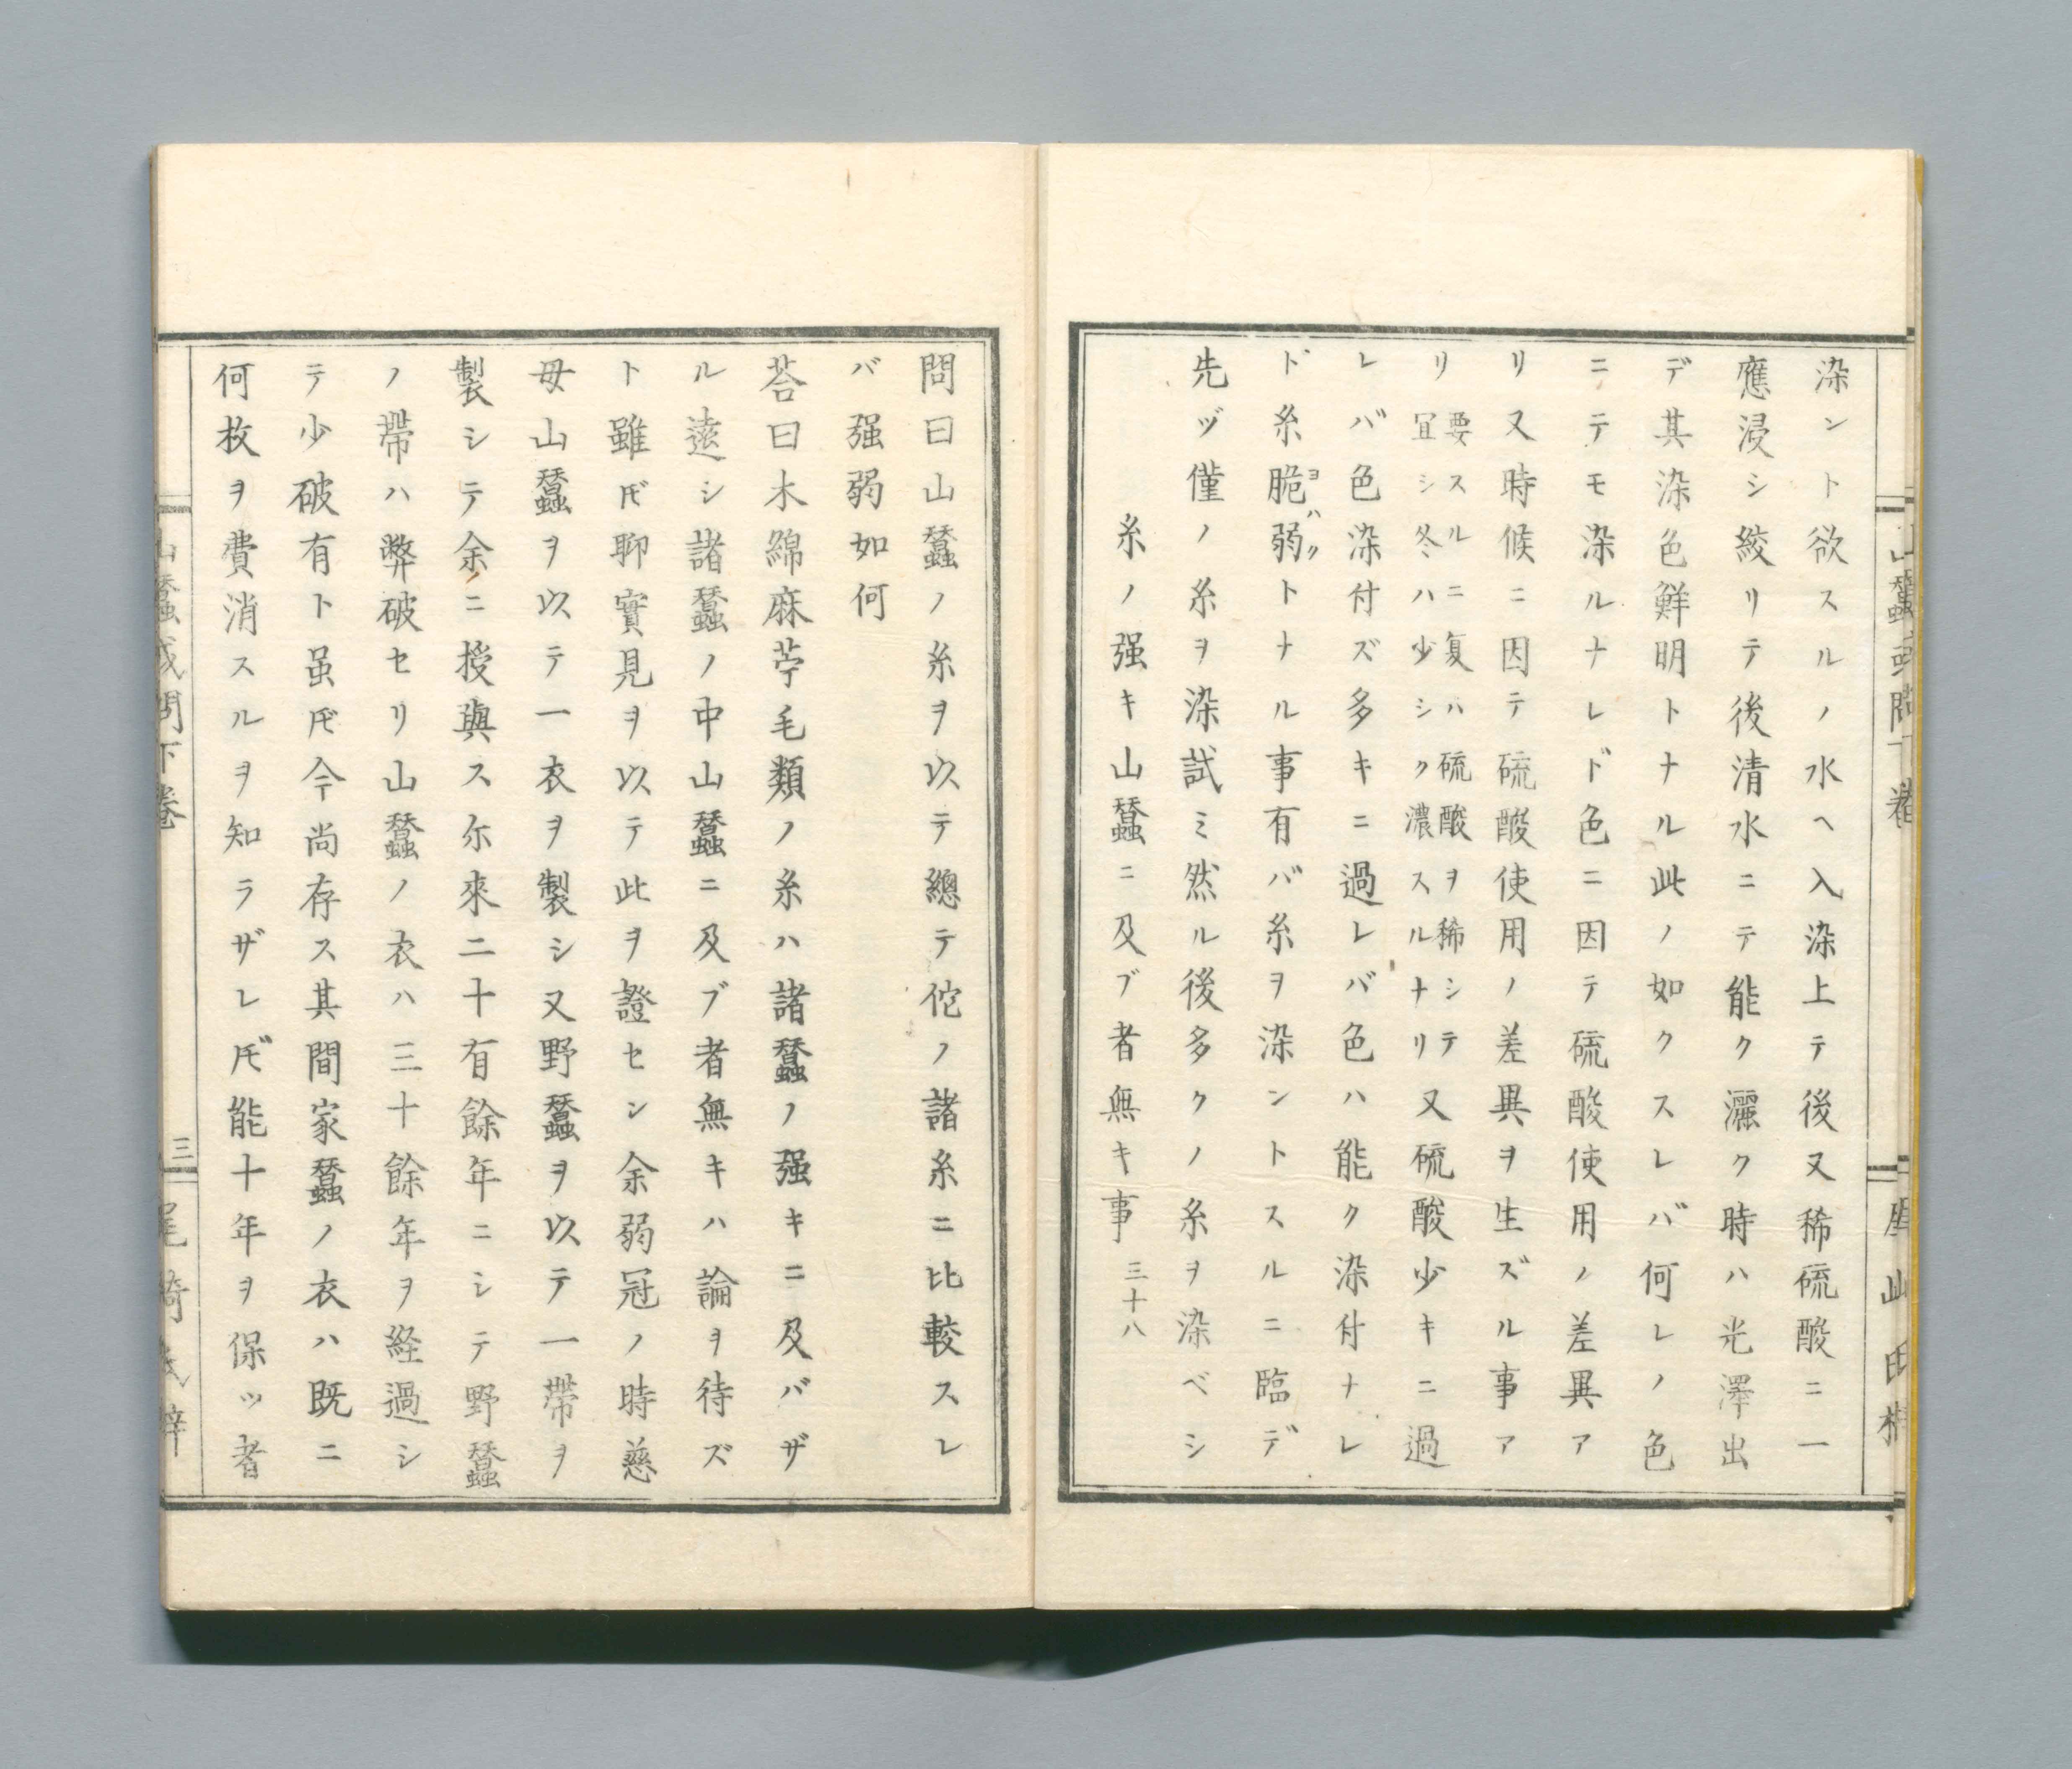 染ント欲スルノ水ヘ入染上テ後又稀硫酸ニ一
應浸シ絞リテ後清水ニテ能ク灑ク時ハ光澤出
デ其染色鮮明トナル此ノ如クスレバ何レノ色
ニテモ染ルナレド色ニ因テ硫酸使用ノ差異ア
リ又時候ニ因テ硫酸使用ノ差異ヲ生ズル事ア
リ要スルニ夏ハ硫酸ヲ稀シテ
宜シ冬ハ少シク濃スルナリ又硫酸少キニ過
レバ色染付ズ多キニ過レバ色ハ能ク染付ナレ
ド糸脆弱トナル事有バ糸ヲ染ントスルニ臨デ
ヨハク
先ヅ僅ノ糸ヲ染試ミ然ル後多クノ糸ヲ染ベシ
糸ノ强キ山蠶ニ及ブ者無キ事 三十八
問曰山蠶ノ糸ヲ以テ總テ佗ノ諸糸ニ比較スレ
バ强弱如何
荅曰木綿麻苧毛類ノ糸ハ諸蠶ノ强キニ及バザ
ル遠シ諸蠶ノ中山蠶ニ及ブ者無キハ論ヲ待ズ
ト雖𪜈聊實見ヲ以テ此ヲ證セン余弱冠ノ時慈
母山蠶ヲ以テ一衣ヲ製シ又野蠶ヲ以テ一帶ヲ
製シテ余ニ授與ス尓來二十有餘年ニシテ野蠶
ノ帶ハ弊破セリ山蠶ノ衣ハ三十餘年ヲ経過シ
テ少破有ト虽𪜈今尚存ス其間家蠶ノ衣ハ既ニ
何枚ヲ費消スルヲ知ラザレ𪜈能十年ヲ保ッ者
山蠶或問下卷
三